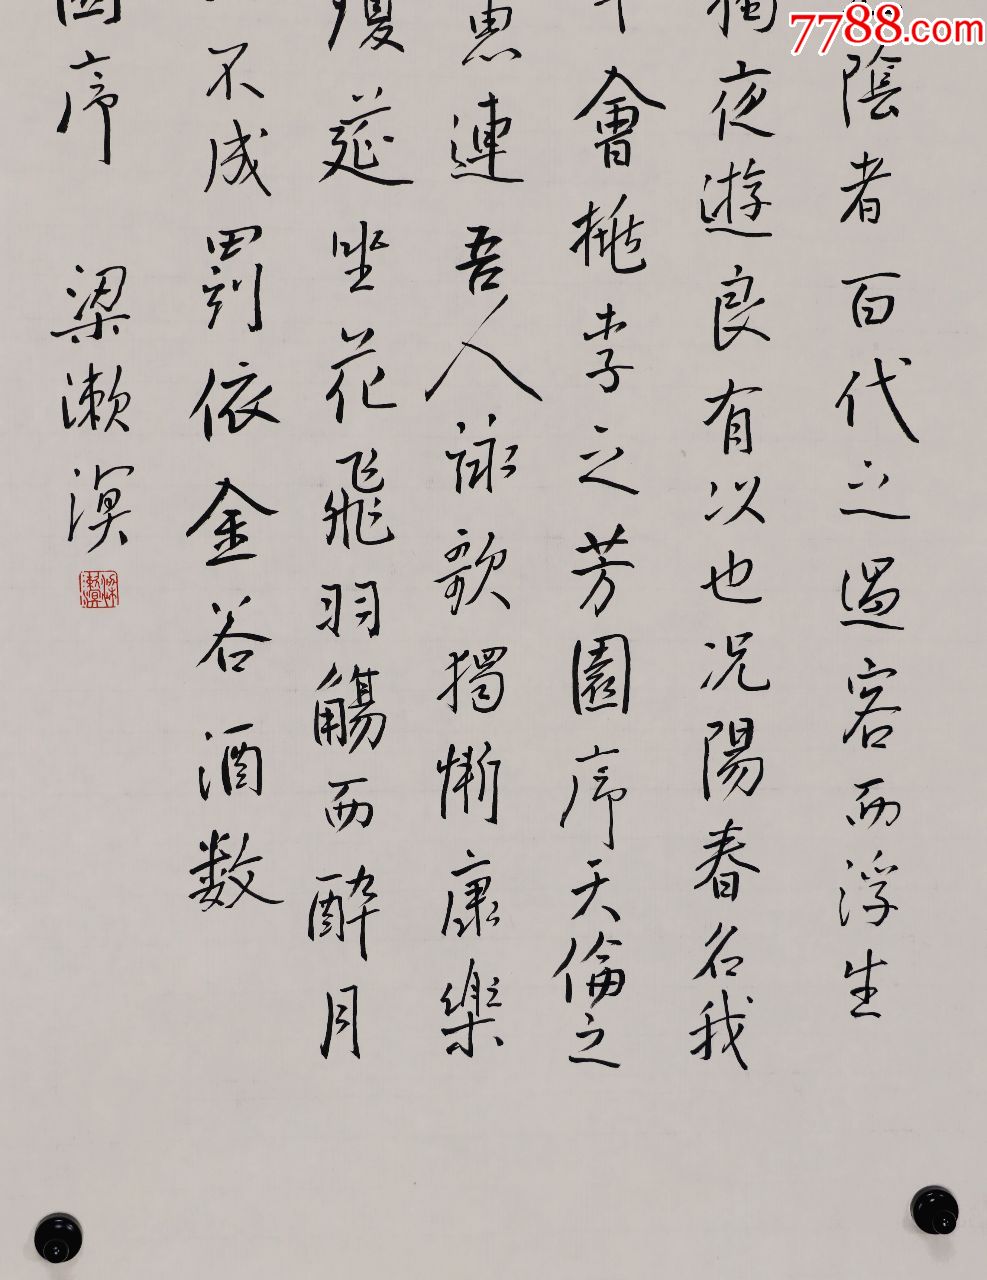 7788.com
陰者百代之過客而浮生
夜遊良有以也况陽春召我
會桃李之芳園序天倫之
惠連吾人詠歌獨慚康樂
瓊筵坐花飛羽觴而醉月
不成罰依金谷酒数
序 梁漱溟